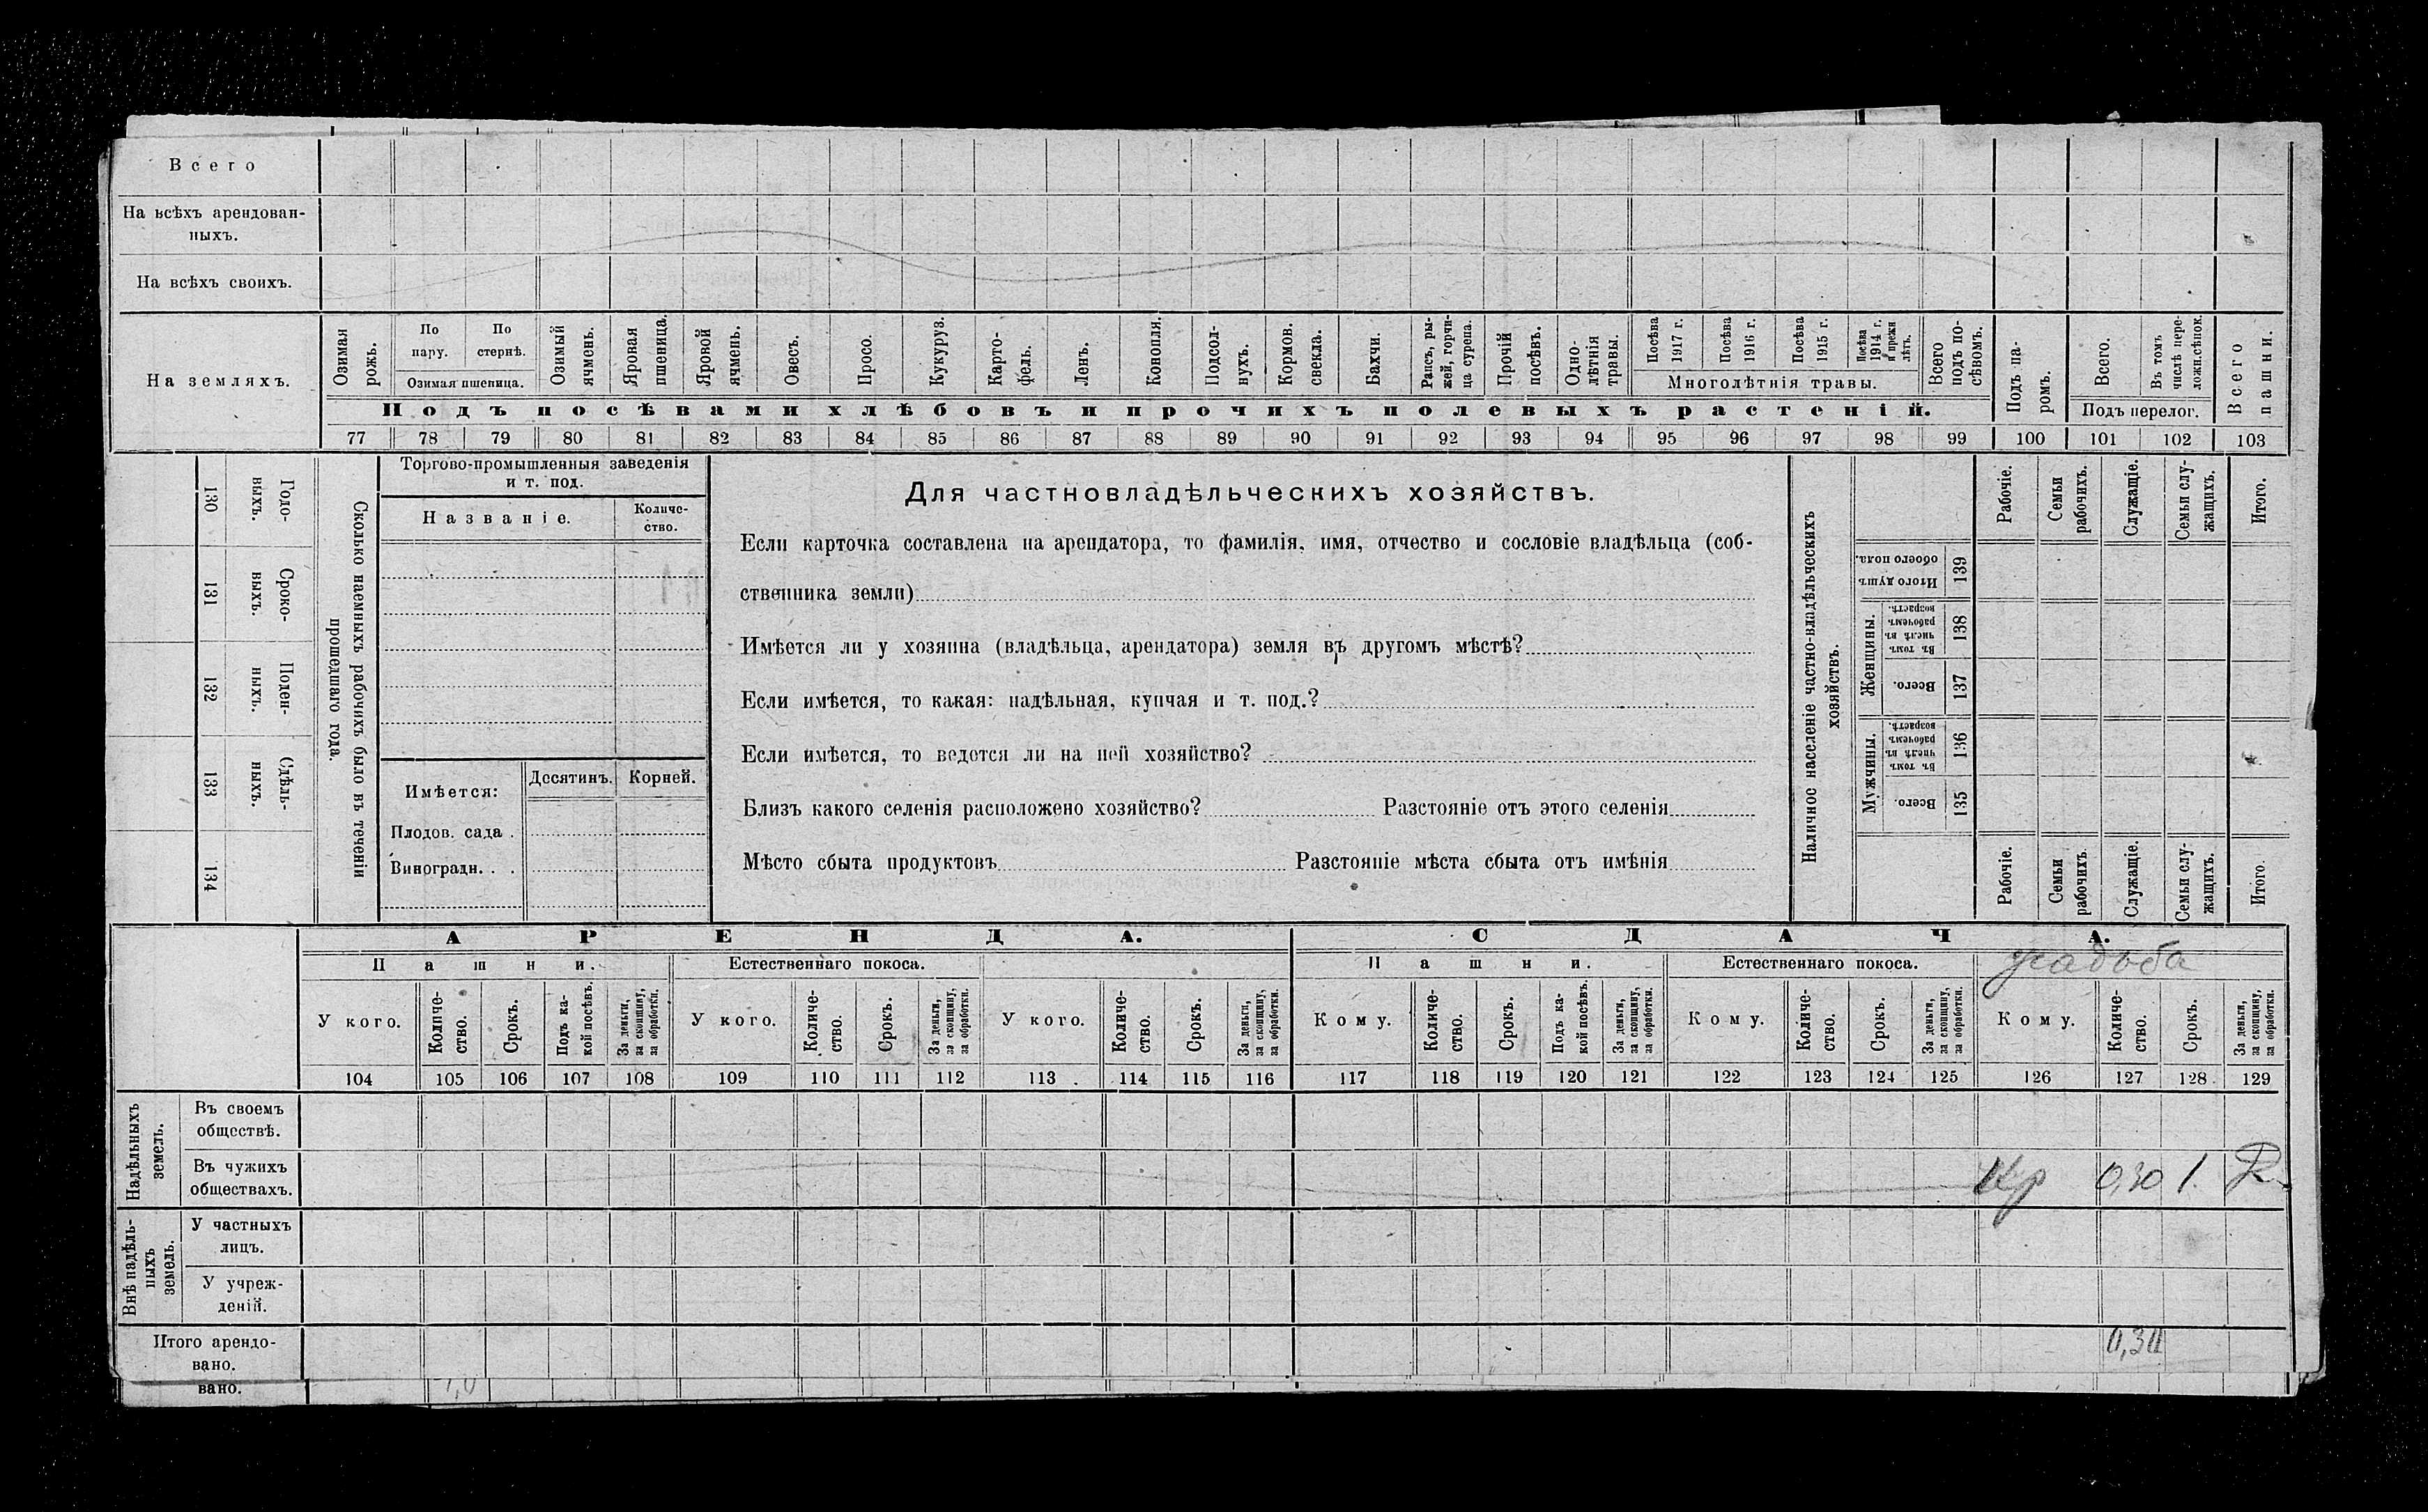 Всего
На всѣхъ арендован-
ныхъ.
На всѣхъ своихъ.
На земляхъ.
Озимая рожь.
По пару.
По стернѣ.
Озимая пшеница.
Озимый ячмень.
Яровая пшеница.
Яровой ячмень.
Овесъ.
Просо.
Кукуруз.
Карто-
фель.
Ленъ.
Конопля.
Подсол-
нухъ.
Кормов. свекла.
Бахчи.
Рапсъ, ры-
жей, горчи-
ца сурепа.
Прочій посѣвъ.
Одно-
лѣтнія травы.
Посѣва 1917 г.
Посѣва 1916 г.
Посѣва 1915 г.
Посѣва 1914 г. и прежн лѣтъ.
Многолѣтнія травы.
Всего подъ по-
сѣвомъ.
Подъ па-
ромъ.
Всего.
Въ томъ числѣ пере-
ложн.сѣнок.
Подъ перелог.
Всего пашни.
Подъ посѣвами хлѣбовъ и прочихъ полевыхъ растеній.
77 78 79 80 81 82 83 84 85 86 87 88 89 90 91 92 93 94 95 96 97 98 99 100 101 102 103
130 Годо-
выхъ.
131 Сроко-
выхъ.
132 Поден-
ныхъ.
133 Сдѣль-
ныхъ.
134
Сколько наемныхъ рабочихъ было въ теченіи
прошедшаго года.
Торгово-промышленныя заведенія
и т. под.
Названіе.
Количе-
ство.
Имѣется:
Десятинъ.
Корней.
Плодов. сада .
Виноградн. . .
Для частновладѣльческихъ хозяйствъ.
Если карточка составлена на арендатора, то фамилія, имя, отчество и сословіе владѣльца (соб-
ственника земли)
Имѣется ли у хозяина (владѣльца, арендатора) земля въ другомъ мѣстѣ?
Если имѣется, то какая: надѣльная, купчая и т. под.?
Если имѣется, то ведется ли на ней хозяйство?
Близъ какого селенія расположено хозяйство? Разстояніе отъ этого селенія
Мѣсто сбыта продуктовъ Разстояніе мѣста сбыта отъ имѣнія
Наличное населеніе частно-владѣльческихъ
хозяйствъ.
Рабочіе.
Семьи рабочихъ.
Служащіе.
Семьи слу-
жащихъ.
Итого.
Итого душъ обоего пола. 139
Женщины.
Въ томъ числѣ въ рабочемъ возрастѣ. 138
Всего. 137
Мужчины.
Въ томъ числѣ въ рабочемъ возрастѣ. 136
Всего. 135
Рабочіе.
Семьи рабочихъ.
Служащіе.
Семьи слу-
жащихъ.
Итого.
АРЕНДА.
СДАЧА.
Пашни.
Естественнаго покоса.
Пашни.
Естественнаго покоса.
усадьба
У кого.
Количе-
ство.
Срокъ.
Подъ ка-
кой посѣвъ.
За деньги, за скопщину, за обработки.
У кого.
Количе-
ство.
Срокъ.
За деньги, за скопщину, за обработки.
У кого.
Количе-
ство.
Срокъ.
За деньги, за скопщину, за обработки.
Кому.
Количе-
ство.
Срокъ.
Подъ ка-
кой посѣвъ.
За деньги, за скопщину, за обработки.
Кому.
Количе-
ство.
Срокъ.
За деньги, за скопщину, за обработки.
Кому.
Количе-
ство.
Срокъ.
За деньги, за скопщину, за обработки.
104 105 106 107 108 109 110 111 112 113 114 115 116 117 118 119 120 121 122 123 124 125 126 127 128 129
Надѣльныхъ земель.
Въ своемъ
обществѣ.
Въ чужихъ
обществахъ.
Кр 0,30 1.
Внѣ надѣль-
ныхъ земель.
У частныхъ
лицъ.
У учреж-
деній.
Итого арендо-
вано.
0,30
вано.